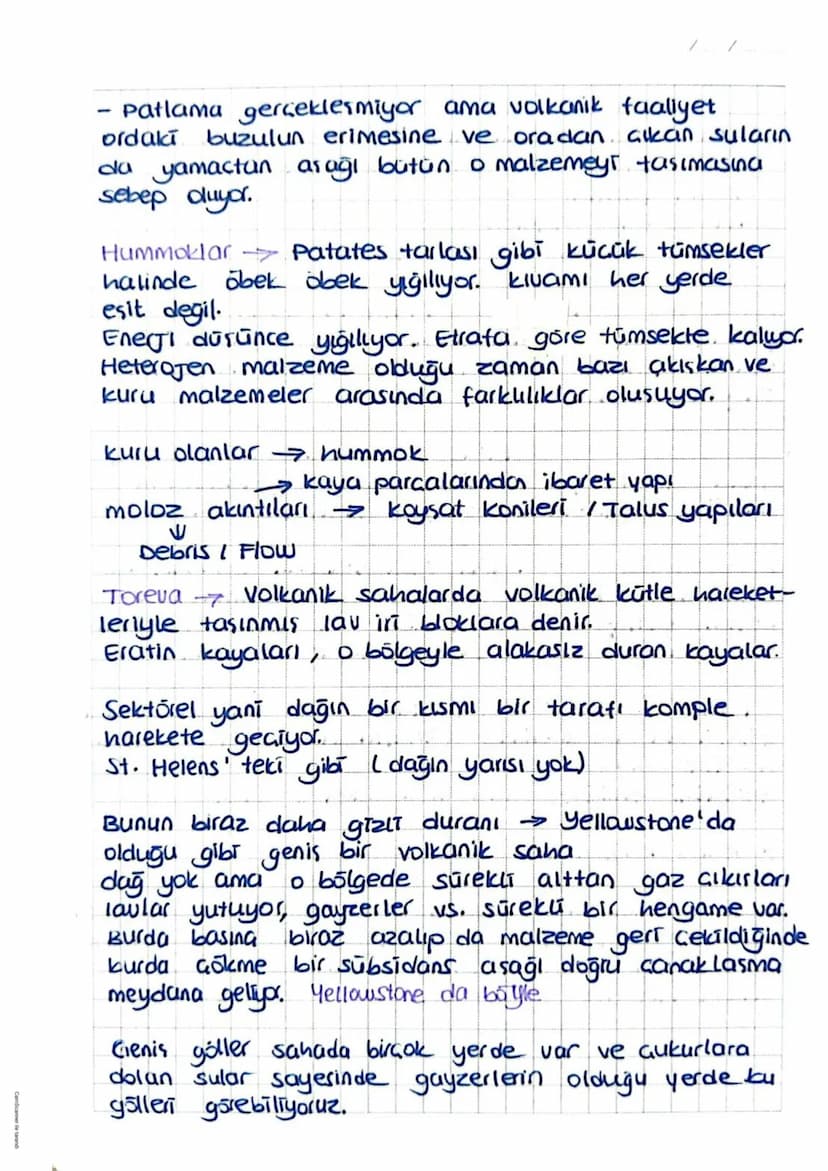 / /
- Patlama gerçekleşmiyor ama volkanik faaliyet
ordaki buzulun erimesine ve oradan çıkan suların
da yamaçtan aşağı bütün o malzemeyi taşımasına
sebep oluyor.
Hummoklar → Patates tarlası gibi küçük tümsekler
halinde öbek öbek yığılıyor. kıvamı her yerde
eşit değil.
Enerji düşünce yığılıyor. Etrafa göre tümsekte kalıyor.
Heterojen malzeme olduğu zaman bazı akışkan ve
kuru malzemeler arasında farklılıklar oluşuyor.
kuru olanlar → hummok
→ kaya parçalarından ibaret yapı
moloz akıntıları → kayşat konileri / Talus yapıları
⇓
Debris / Flow
Toreva → Volkanik sahalarda volkanik kütle hareket-
leriyle taşınmış lav iri bloklara denir.
Eratin kayaları, o bölgeyle alakasız duran kayalar.
Sektörel yani dağın bir kısmı bir tarafı komple
harekete geçiyor.
St. Helens' teki gibi (dağın yarısı yok)
Bunun biraz daha gizli duranı → Yellowstone'da
olduğu gibi geniş bir volkanik saha
dağ yok ama o bölgede sürekli alttan gaz çıkışları
lavlar yutuyor, gayzerler vs. sürekli bir hengame var.
Burda basınç biraz azalıp da malzeme geri çekildiğinde
burda çökme bir sübsidans aşağı doğru çanaklaşma
meydana geliyor. Yellowstone da böyle
Geniş göller sahada birçok yerde var ve çukurlara
dolan sular sayesinde gayzerlerin olduğu yerde bu
gölleri görebiliyoruz.
CamScanner ile tarandı